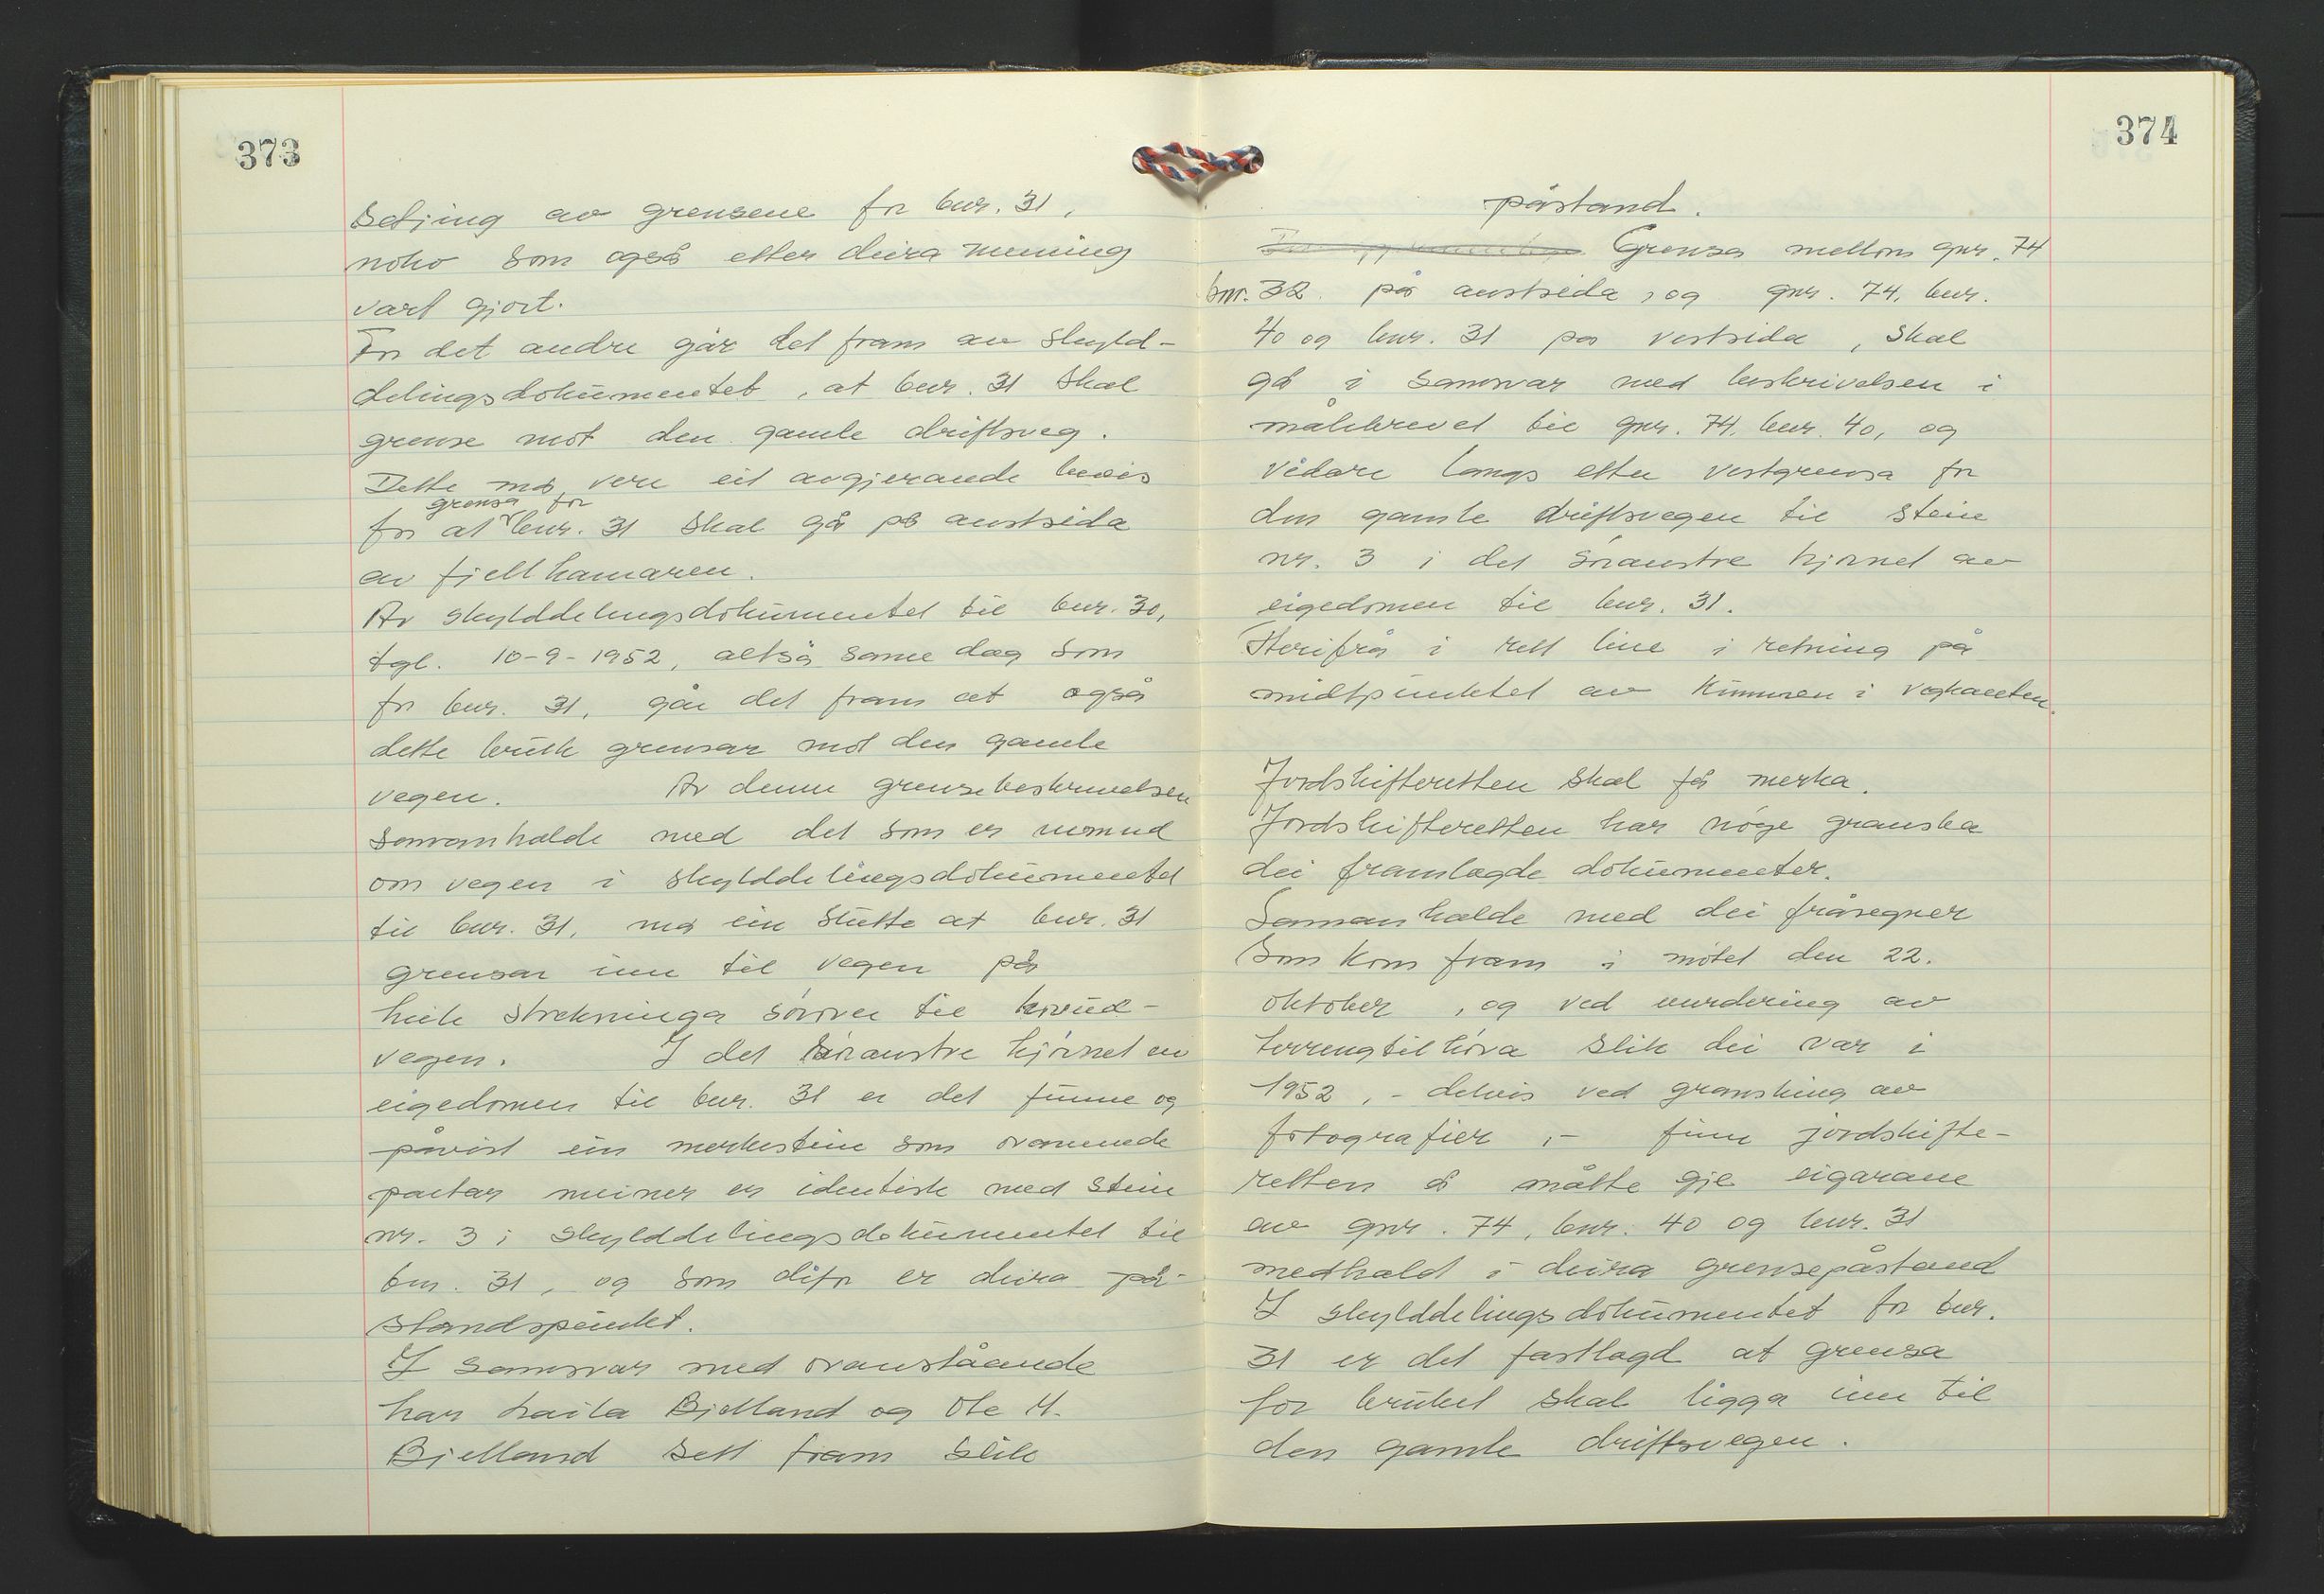 373
setjing av grensene for bnr. 31,
noko som også etter deira meining
vart gjort.
For det andre går det fram av skyld-
delingsdokumentet, at bnr. 31 skal
grense mot den gamle driftsveg.
Dette må vere eit avgjerande bevis
grensa for
for at bnr. 31 skal gå på austsida
av fjellhamaren.
Av skylddelingsdokumentet til bnr. 30,
tgl. 10-9-1952, altså same dag som
for bnr. 31, går det fram at også
dette bruk grensar mot den gamle
vegen. Av denne grensebeskrivelsen
samanhalde med det som er nemnd
om vegen i skylddelingsdokumentet
til bnr. 31, må ein slutte at bnr. 31
grensar inn til vegen på
heile strekninga sørover til hovud-
vegen. I det søraustre hjørnet av
eigedomen til bnr. 31 er det funne og
påvist ein merkestein som ovannemde
partar meiner er identisk med stein
nr. 3 i skylddelingsdokumentet til
bnr. 31, og som difor er deira på-
standspunkt.
I samsvar med ovanståande
har Laila Bjelland og Ole H.
Bjelland sett fram slik
374
påstand.
Grensa mellom gnr. 74
bnr. 32 på austsida, og gnr. 74, bnr.
40 og bnr. 31 på vestsida, skal
gå i samsvar med beskrivelsen i
målebrevet til gnr. 74, bnr. 40, og
vidare langs etter vestgrensa for
den gamle driftsvegen til stein
nr. 3 i det søraustre hjørnet av
eigedomen til bnr. 31.
Herifrå i rett line i retning på
midtpunktet av kummen i vegkanten.
Jordskifteretten skal få merka.
Jordskifteretten har nøye granska
dei framlagde dokumenter.
Samanhalde med dei fråsegner
som kom fram i møtet den 22.
oktober, og ved vurdering av
terrengtilhøva slik dei var i
1952, - delvis ved gransking av
fotografier, - finn jordskifte-
retten å måtte gje eigarane
av gnr. 74, bnr. 40 og bnr. 31
medhald i deira grensepåstand
I skylddelingsdokumentet for bnr.
31 er det fastlagd at grensa
for bruket skal ligga inn til
den gamle driftsvegen.